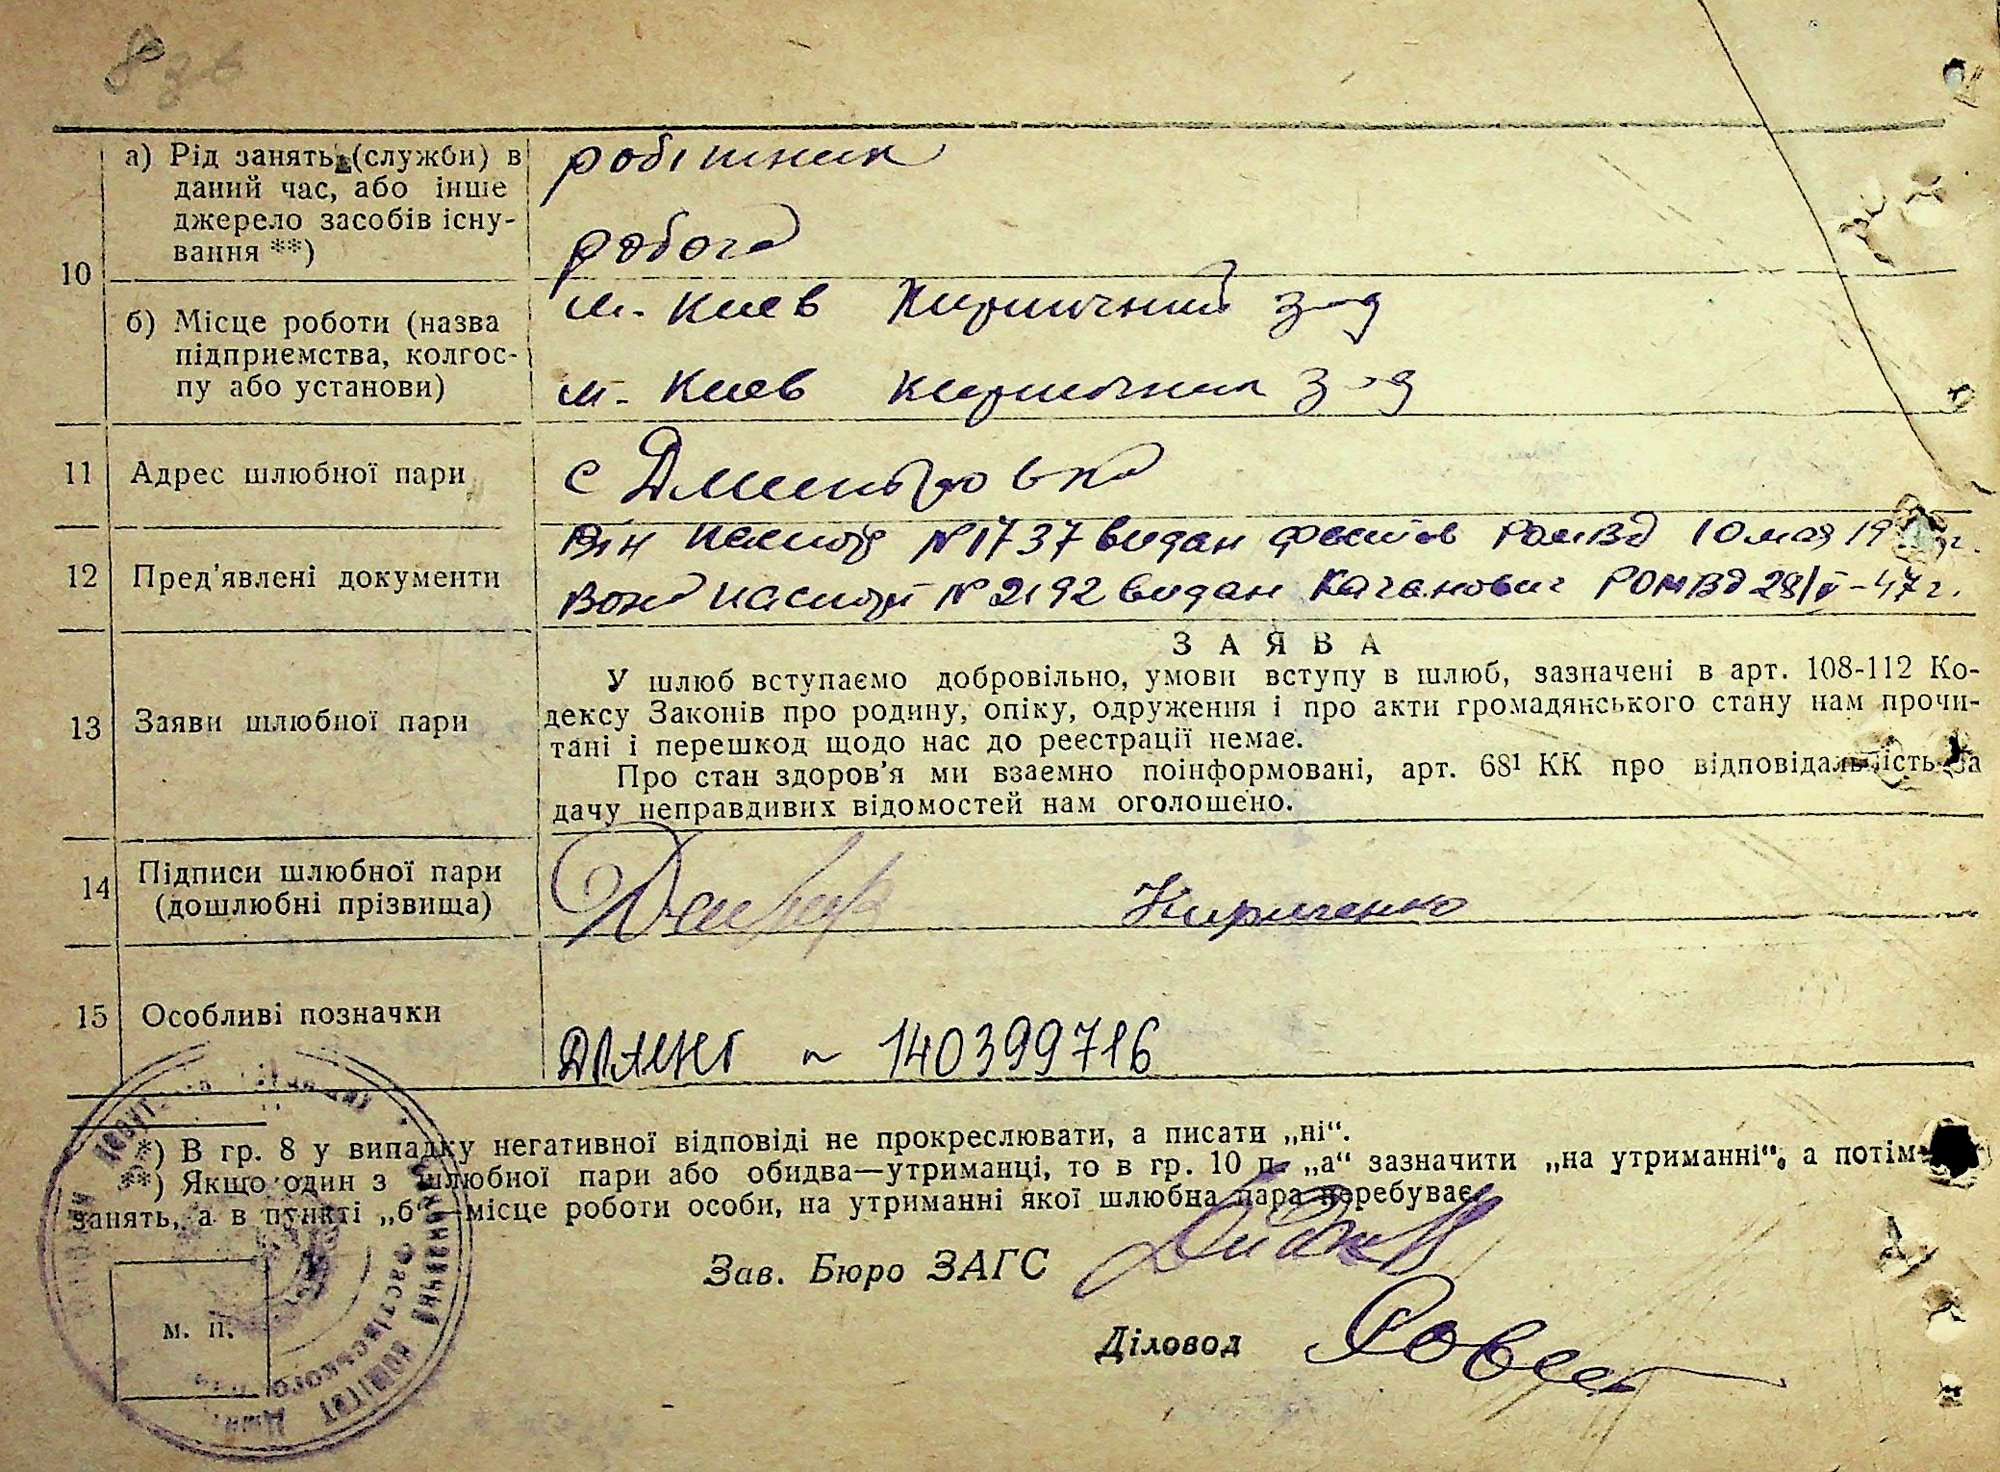 8 зв
а) Рід занять (служби) в
даний час, або інше
джерело засобів існу-
вання **)
робітник
робота
10
б) Місце роботи (назва
підприємства, колгос-
пу або установи)
м. Киев Кирпичний з-д
м. Киев кирпични з-д
11 Адрес шлюбної пари
с Дмитровка
12 Пред'явлені документи
Він паспорт № 1737 видан Фастов РОМВД 10 мая 19 г.
Вона паспорт № 2192 видан Каганович РОМВД 28/V-47 г.
13 Заяви шлюбної пари
ЗАЯВА
У шлюб вступаємо добровільно, умови вступу в шлюб, зазначені в арт. 108-112 Ко-
дексу Законів про родину, опіку, одруження і про акти громадянського стану нам прочи-
тані і перешкод щодо нас до реестрації немає.
Про стан здоров'я ми взаємно поінформовані, арт. 68¹ КК про відповідальність за
дачу неправдивих відомостей нам оголошено.
14 Підписи шлюбної пари
(дошлюбні прізвища)
Кириченко
15 Особливі позначки
140399716
*) В гр. 8 у випадку негативної відповіді не прокреслювати, а писати „ні“.
**) Якщо один з шлюбної пари або обидва—утриманці, то в гр. 10 п. „а“ зазначити „на утриманні“, а потім
занять, а в пункті „б“—місце роботи особи, на утриманні якої шлюбна пара перебуває.
Зав. Бюро ЗАГС
Діловод
м. п.
Виконавчий комітет
Фастівського